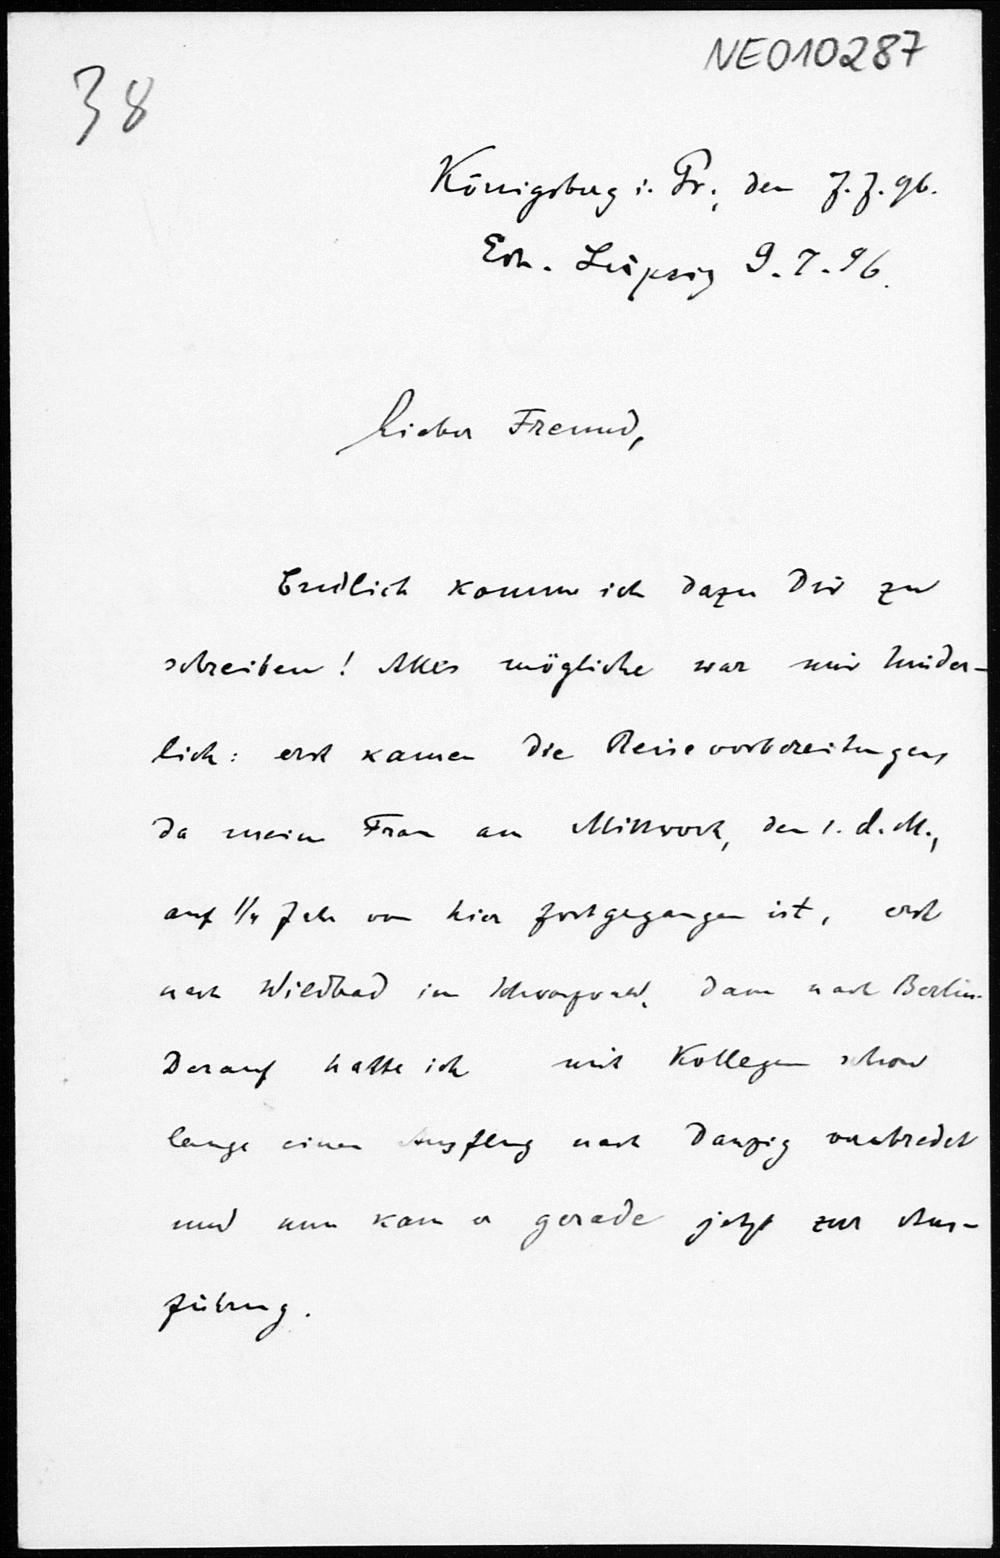 NE010287
38
Königsberg i. Pr., den 7.7.96.
Erh. Leipzig 9.7.96.
Lieber Freund,
Endlich komme ich dazu Dir zu
schreiben! Alles mögliche war mir hinder-
lich: erst kamen die Reisevorbereitungen,
da meine Frau am Mittwoch, den 1. d. M.,
auf 1/4 Jahr von hier fortgegangen ist, erst
nach Wildbad im Schwarzwald, dann nach Berlin.
Darauf hatte ich mit Kollegen schon
lange einen Ausflug nach Danzig verabredet
und nun kam er gerade jetzt zur Aus-
führung.